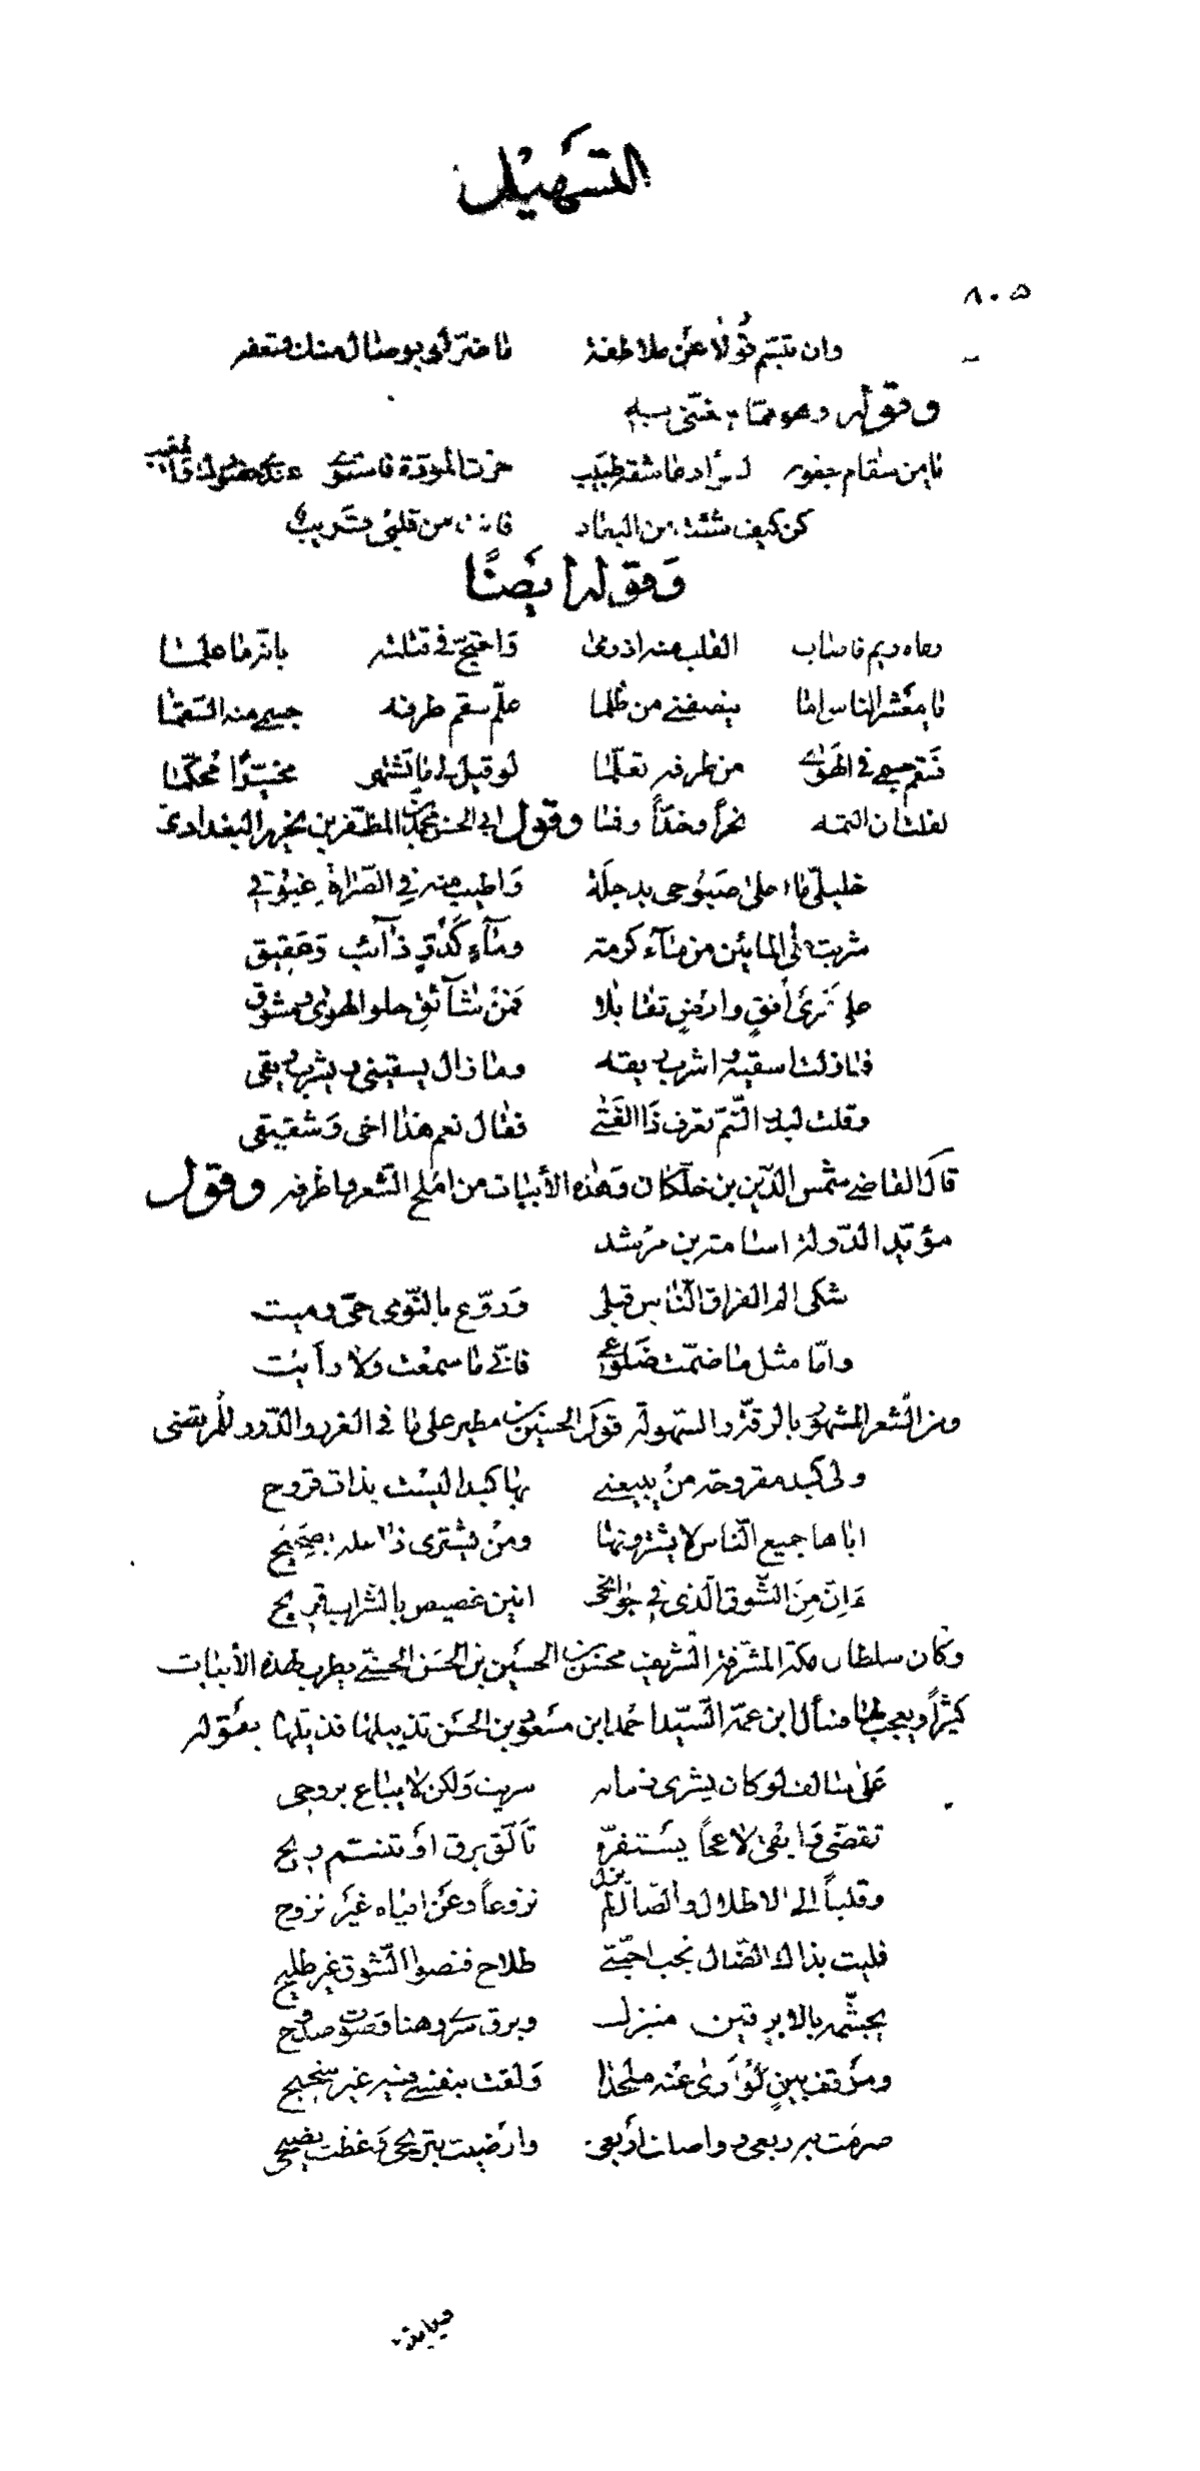 التسهيل
٨٠٥
وان تبسم قولا عن ملاطفة ما ضر لو بوصال منك تسعفه
وقوله وهو مما يغنى به
يا من سقام جفونه لسواد عاشقه طبيب حزت المودة فاستوى عندي حضورك والمغيب
كن كيف شئت من البعاد فانت من قلبي قريب
وقوله ايضا
رماه ريم فاصاب القلب منه اذ رمى واحتج في قتلته بانه ما علما
يا معشر الناس اما ينصفني من ظلما علم سقم طرفه جسمي منه السقما
فسقم جسمي في الهوى من طرفه تعلما لو قيل لي ما تشتهي مخيرا محكما
لقلت ان الثمه نحرا وخدا وفما وقول ابي الحسن محمد بن المظفر بن نحرير البغدادي
خليلي ما احلى صبوحي بدجلة واطيب منه في الصراة غبوقي
شربت على المائين من ماء كرمة وماء كدر ذائب وعقيق
على قمري افق وارض تقابلا فمن شائق حلو الهوى ومشوق
فما زلت اسقيه واشرب ريقه وما زال يسقيني ويشرب ريقي
وقلت لبدر التم تعرف ذا الفتى فقال نعم هذا اخي وشقيقي
قال القاضي شمس الدين بن خلكان وهذه الأبيات من املح الشعر واظرفه وقول
مؤيد الدولة اسامة بن مرشد
شكى الم الفراق الناس قبلي وروع بالنوى حي وميت
واما مثل ما ضمت ضلوعي فاني ما سمعت ولا رأيت
ومن الشعر المشهور بالرقة والسهولة قول الحسين بن مطير على ما في الغرر والدرر للمرتضى
ولي كبد مقروحة من يبيعني بها كبدا ليست بذات قروح
اباها جميع الناس لا يشترونها ومن يشتري ذا علة بصحيح
ءإن من الشوق الذي في جوانحي انين غصيص بالشراب قريح
وكان سلطان مكة المشرفة الشريف محسن بن الحسين بن الحسن الحسني يطرب لهذه الأبيات
كثيرا ويعجب بها فسأل ابن عمه السيد احمد ابن مسعود بن الحسن تذييلها فذيلها بقوله
على سالف لو كان يشرى زمانه شريت ولكن لا يباع بروحي
تقضى وابقى لاعجا يستفزه تألق برق او تنسم ريح
وقلبا الى الاطلال والضال لم يزل نزوعا وعن افياه غير نزوح
فليت بذاك الضال نجب احبتي طلاح فنضو الشوق غير طليح
يجشمه بالابرقين منيزل وبرق سرى وهنا وصوت صدوح
وموقف بين لو ارى عنه ملحدا ولفت بنفسي فيه غير نجيح
صرمت به ربعي وواصلت اربعي وارضيت تبريحي وغظت نصيحي